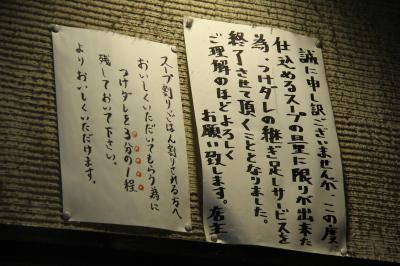 誠に申し訳ございませんが、この度
仕込めるスープの旦里に限りが出来た
為 つけダレの継ぎ足しサービスを
終了させて頂くこととなりました。
ご理解のほどよろしく
お願い致します。店主
スープ割りごはん割りされる方へ
おいしくいただいてもらう為に
つけダレを3分の1程、
残しておいて下さい。
よりおいしくいただけます。